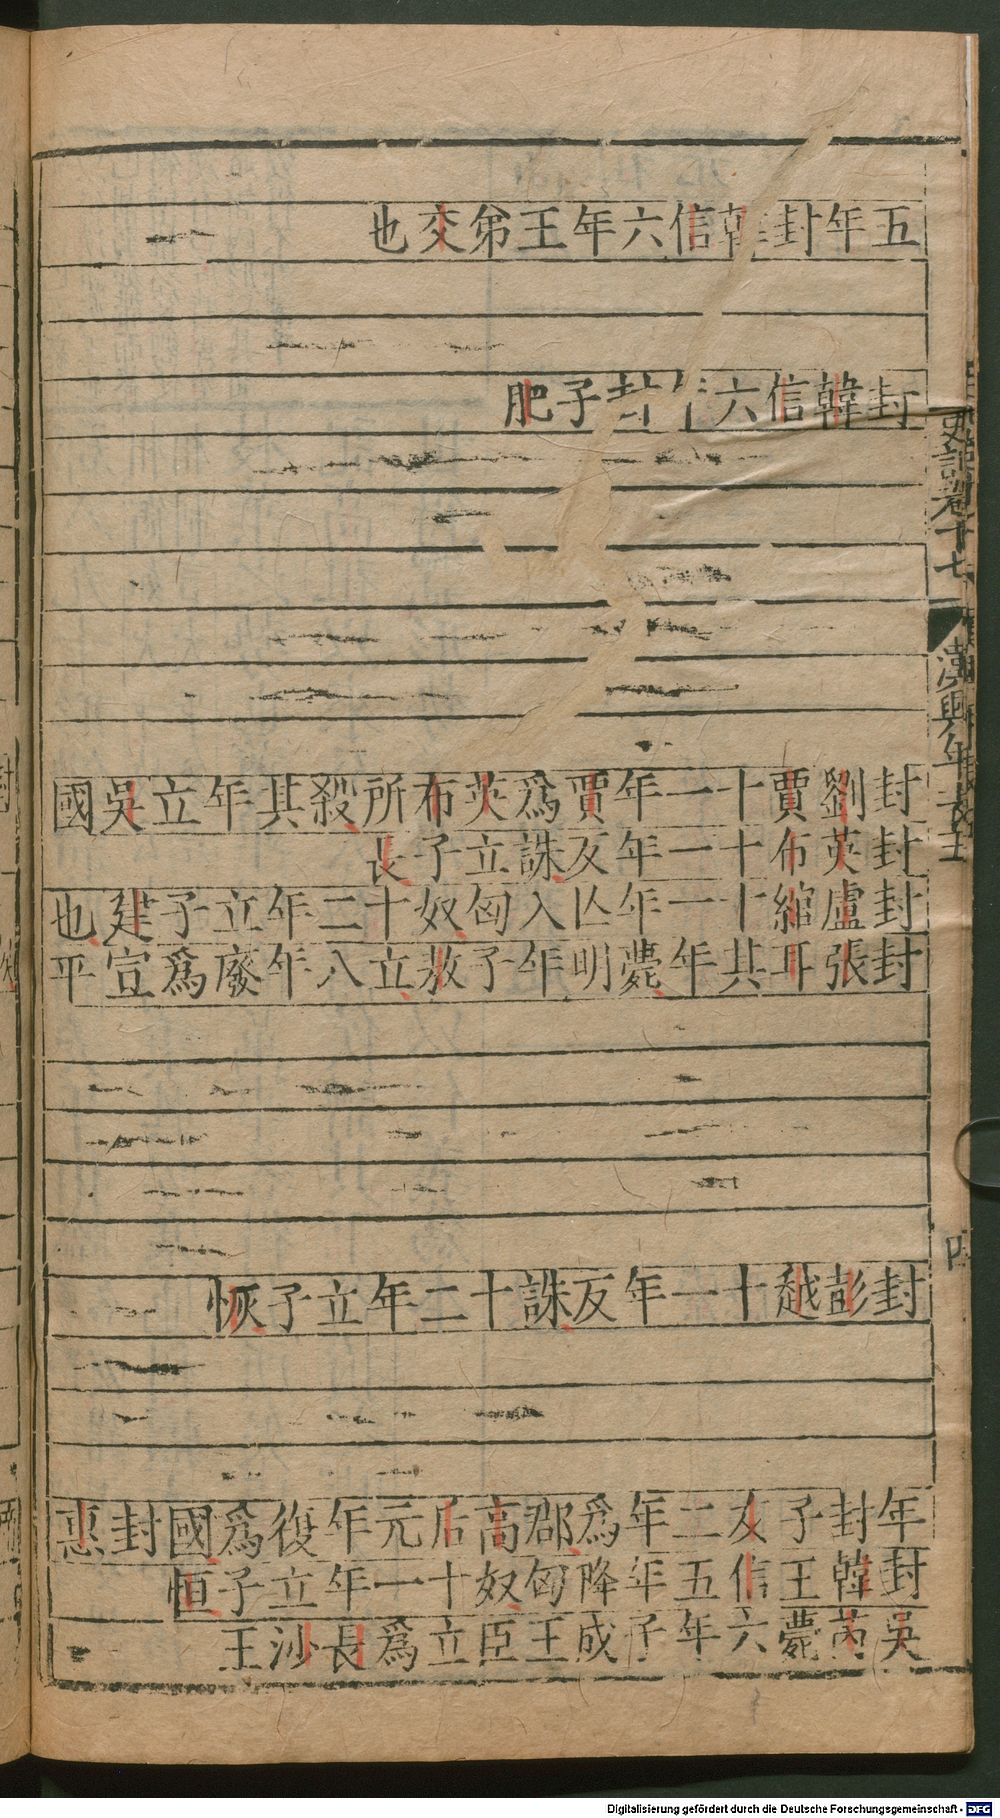 五年封韓信六年王弟交也
封韓信六年封子肥
封劉賈十一年賈爲英布所殺其年立吳國
封英布十一年反誅立子長
封盧綰十一年亾入匈奴十二年立子建也
封張耳其年薨明年子敖立八年廢爲宣平
封彭越十一年反誅十二年立子恢
年封子友二年爲郡高后元年復爲國封惠
封韓王信五年降匈奴十一年立子恒
吳芮薨六年子成王臣立爲長沙王
史記卷十七 漢興年表
四
Digitalisierung gefördert durch die Deutsche Forschungsgemeinschaft - DFG